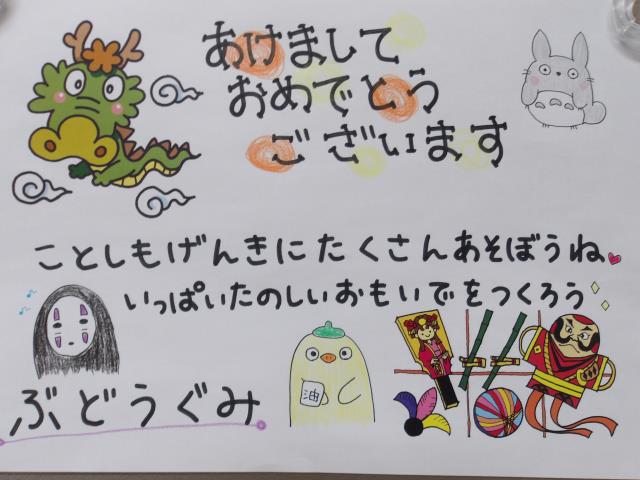 あけまして
おめでとう
ございます
ことしもげんきにたくさんあそぼうね
いっぱいたのしいおもいでをつくろう
油
ぶどうぐみ